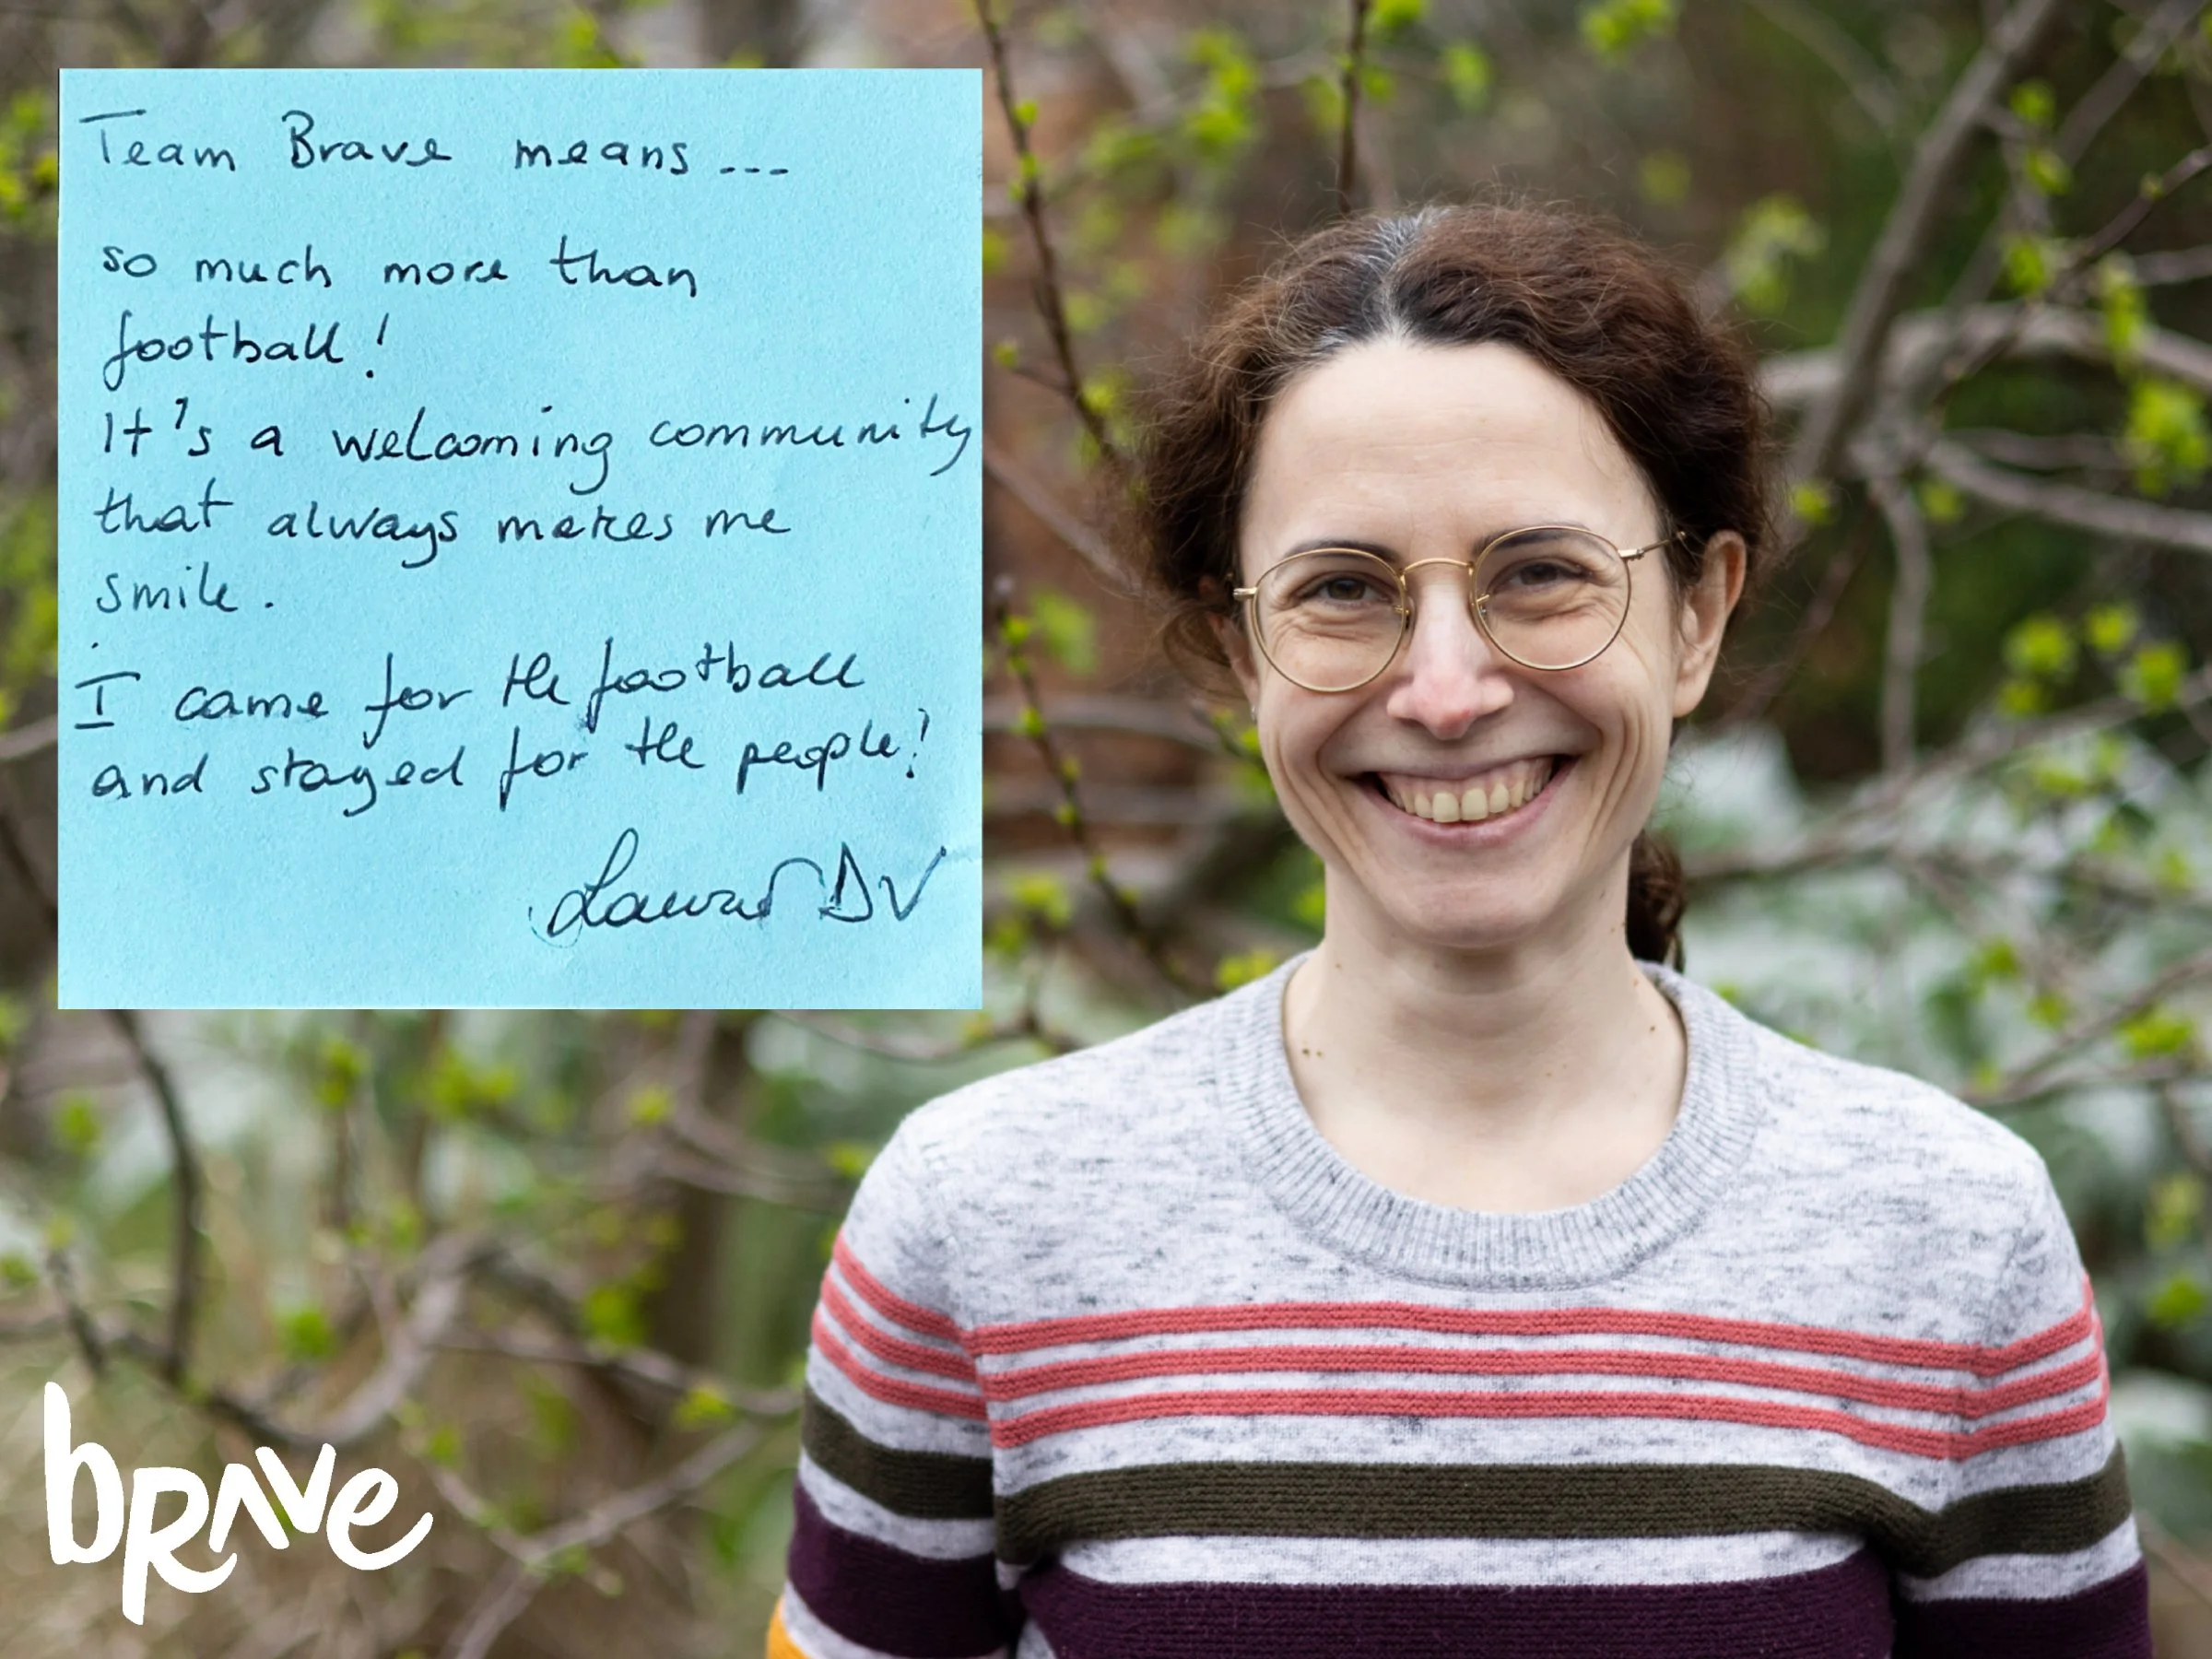 Team Brave means ---
so much more than
football!
It's a welcoming community
that always makes me
smile.
I came for the football
and stayed for the people!
DV
brave